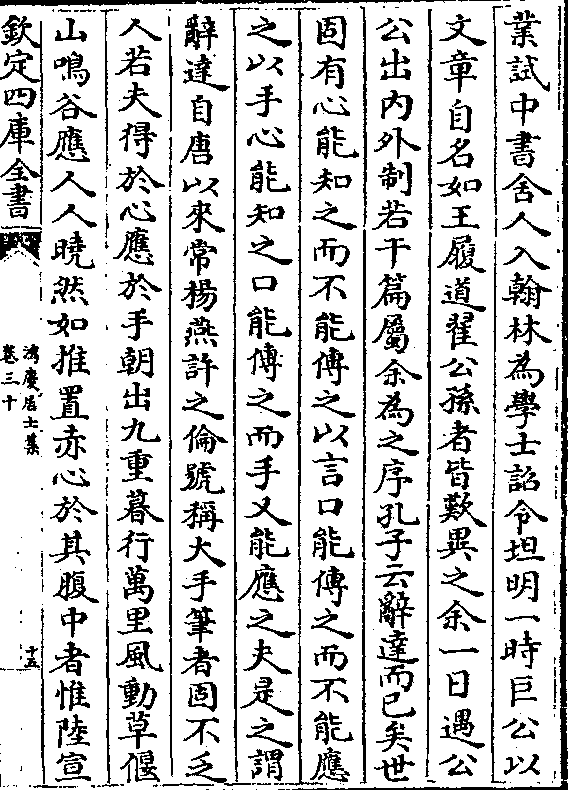 業試中書舍人入翰林為學士詔令坦明一時巨公以
文章自名如王履道翟公孫者皆歎異之余一日遇公
公出内外制若干篇屬余為之序孔子云辭達而已矣世
固有心能知之而不能傳之以言口能傳之而不能應
之以手心能知之口能傳之而手又能應之夫是之謂
辭達自唐以來常楊燕許之倫號稱大手筆者固不乏
人若夫得於心應於手朝出九重暮行萬里風動草偃
山鳴谷應人人曉然如推置赤心於其腹中者惟陸宣
欽定四庫全書
鴻慶居士集
卷三十
十五